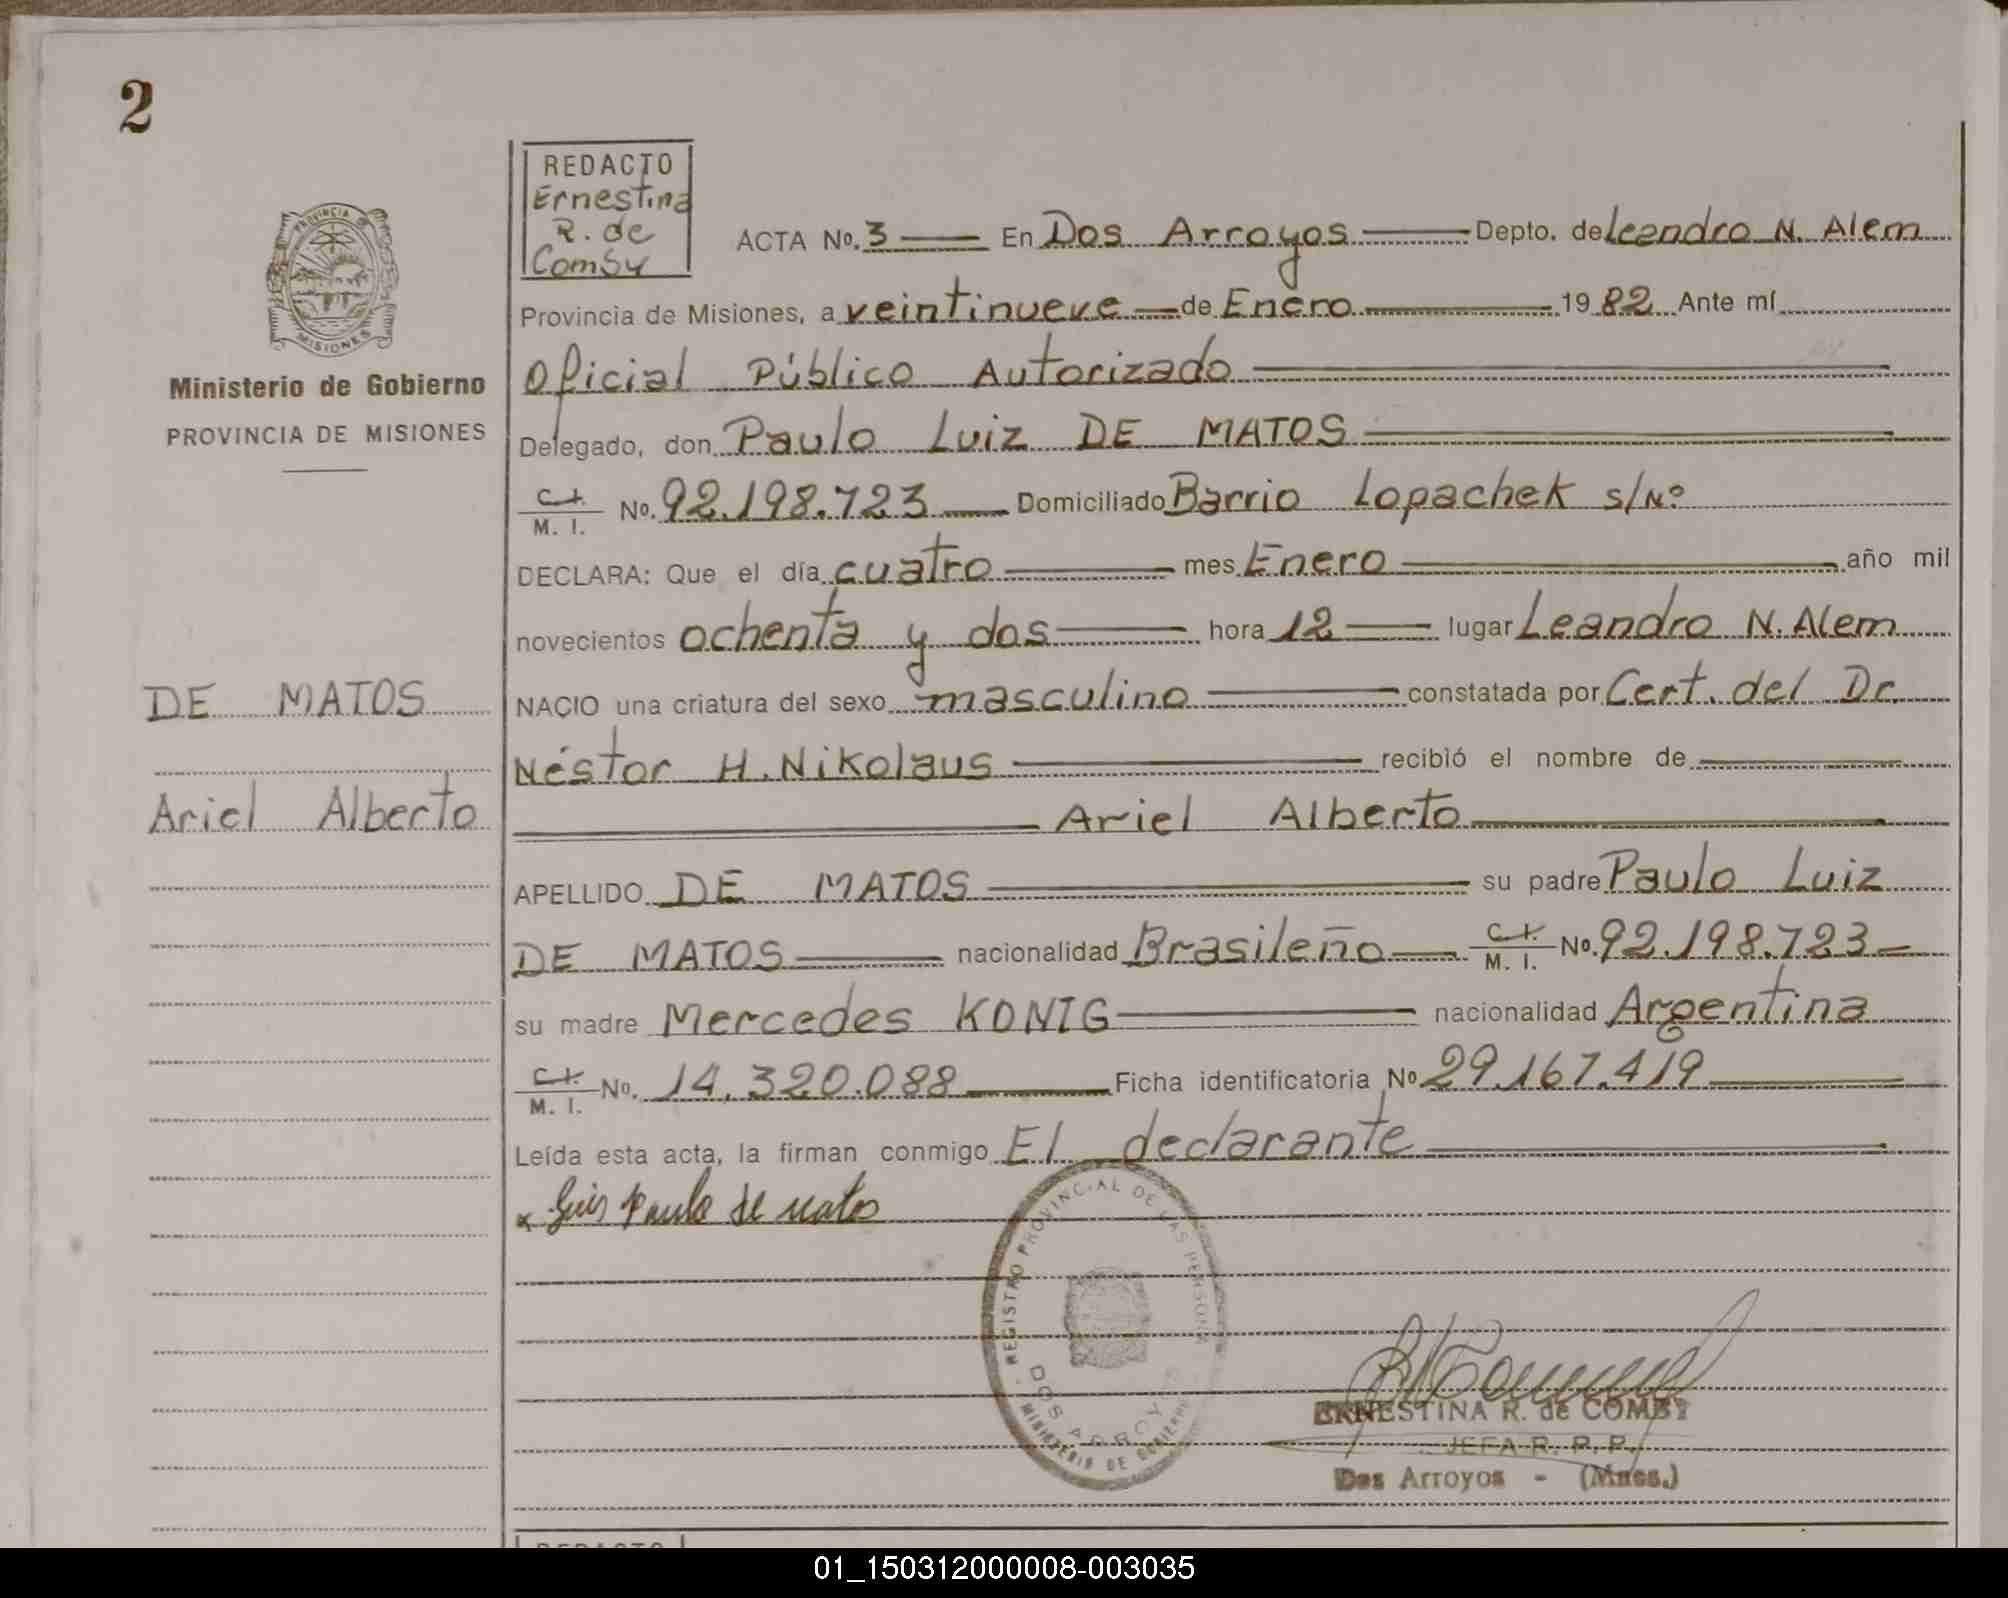 2
REDACTO
Ernestina
R. de
Comby
PROVINCIA DE
MISIONES
Ministerio de Gobierno
PROVINCIA DE MISIONES
ACTA No. 3 En Dos Arroyos Depto. de Leandro N. Alem
Provincia de Misiones, a veintinueve de Enero 1982 Ante mí
Oficial Público Autorizado
Delegado, don Paulo Luiz DE MATOS
C.I. M. I. No. 92.198.723 Domiciliado Barrio Lopachek s/Nº
DECLARA: Que el día cuatro mes Enero año mil
novecientos ochenta y dos hora 12 lugar Leandro N. Alem
DE MATOS
NACIO una criatura del sexo masculino constatada por Cert. del Dr.
Néstor H. Nikolaus recibió el nombre de
Ariel Alberto
Ariel Alberto
APELLIDO DE MATOS su padre Paulo Luiz
DE MATOS nacionalidad Brasileño C.I. M. I. No. 92.198.723
su madre Mercedes KONIG nacionalidad Argentina
C.I. M. I. No. 14.320.088 Ficha identificatoria No 29.167.419
Leída esta acta, la firman conmigo El declarante
x Luis Paulo de matos
REGISTRO PROVINCIAL DE LAS PERSONAS
DOS ARROYOS
MINISTERIO DE GOBIERNO
ERNESTINA R. de COMBY
JEFA R. P. P.
Dos Arroyos - (Mnes.)
REDACTO
01_150312000008-003035